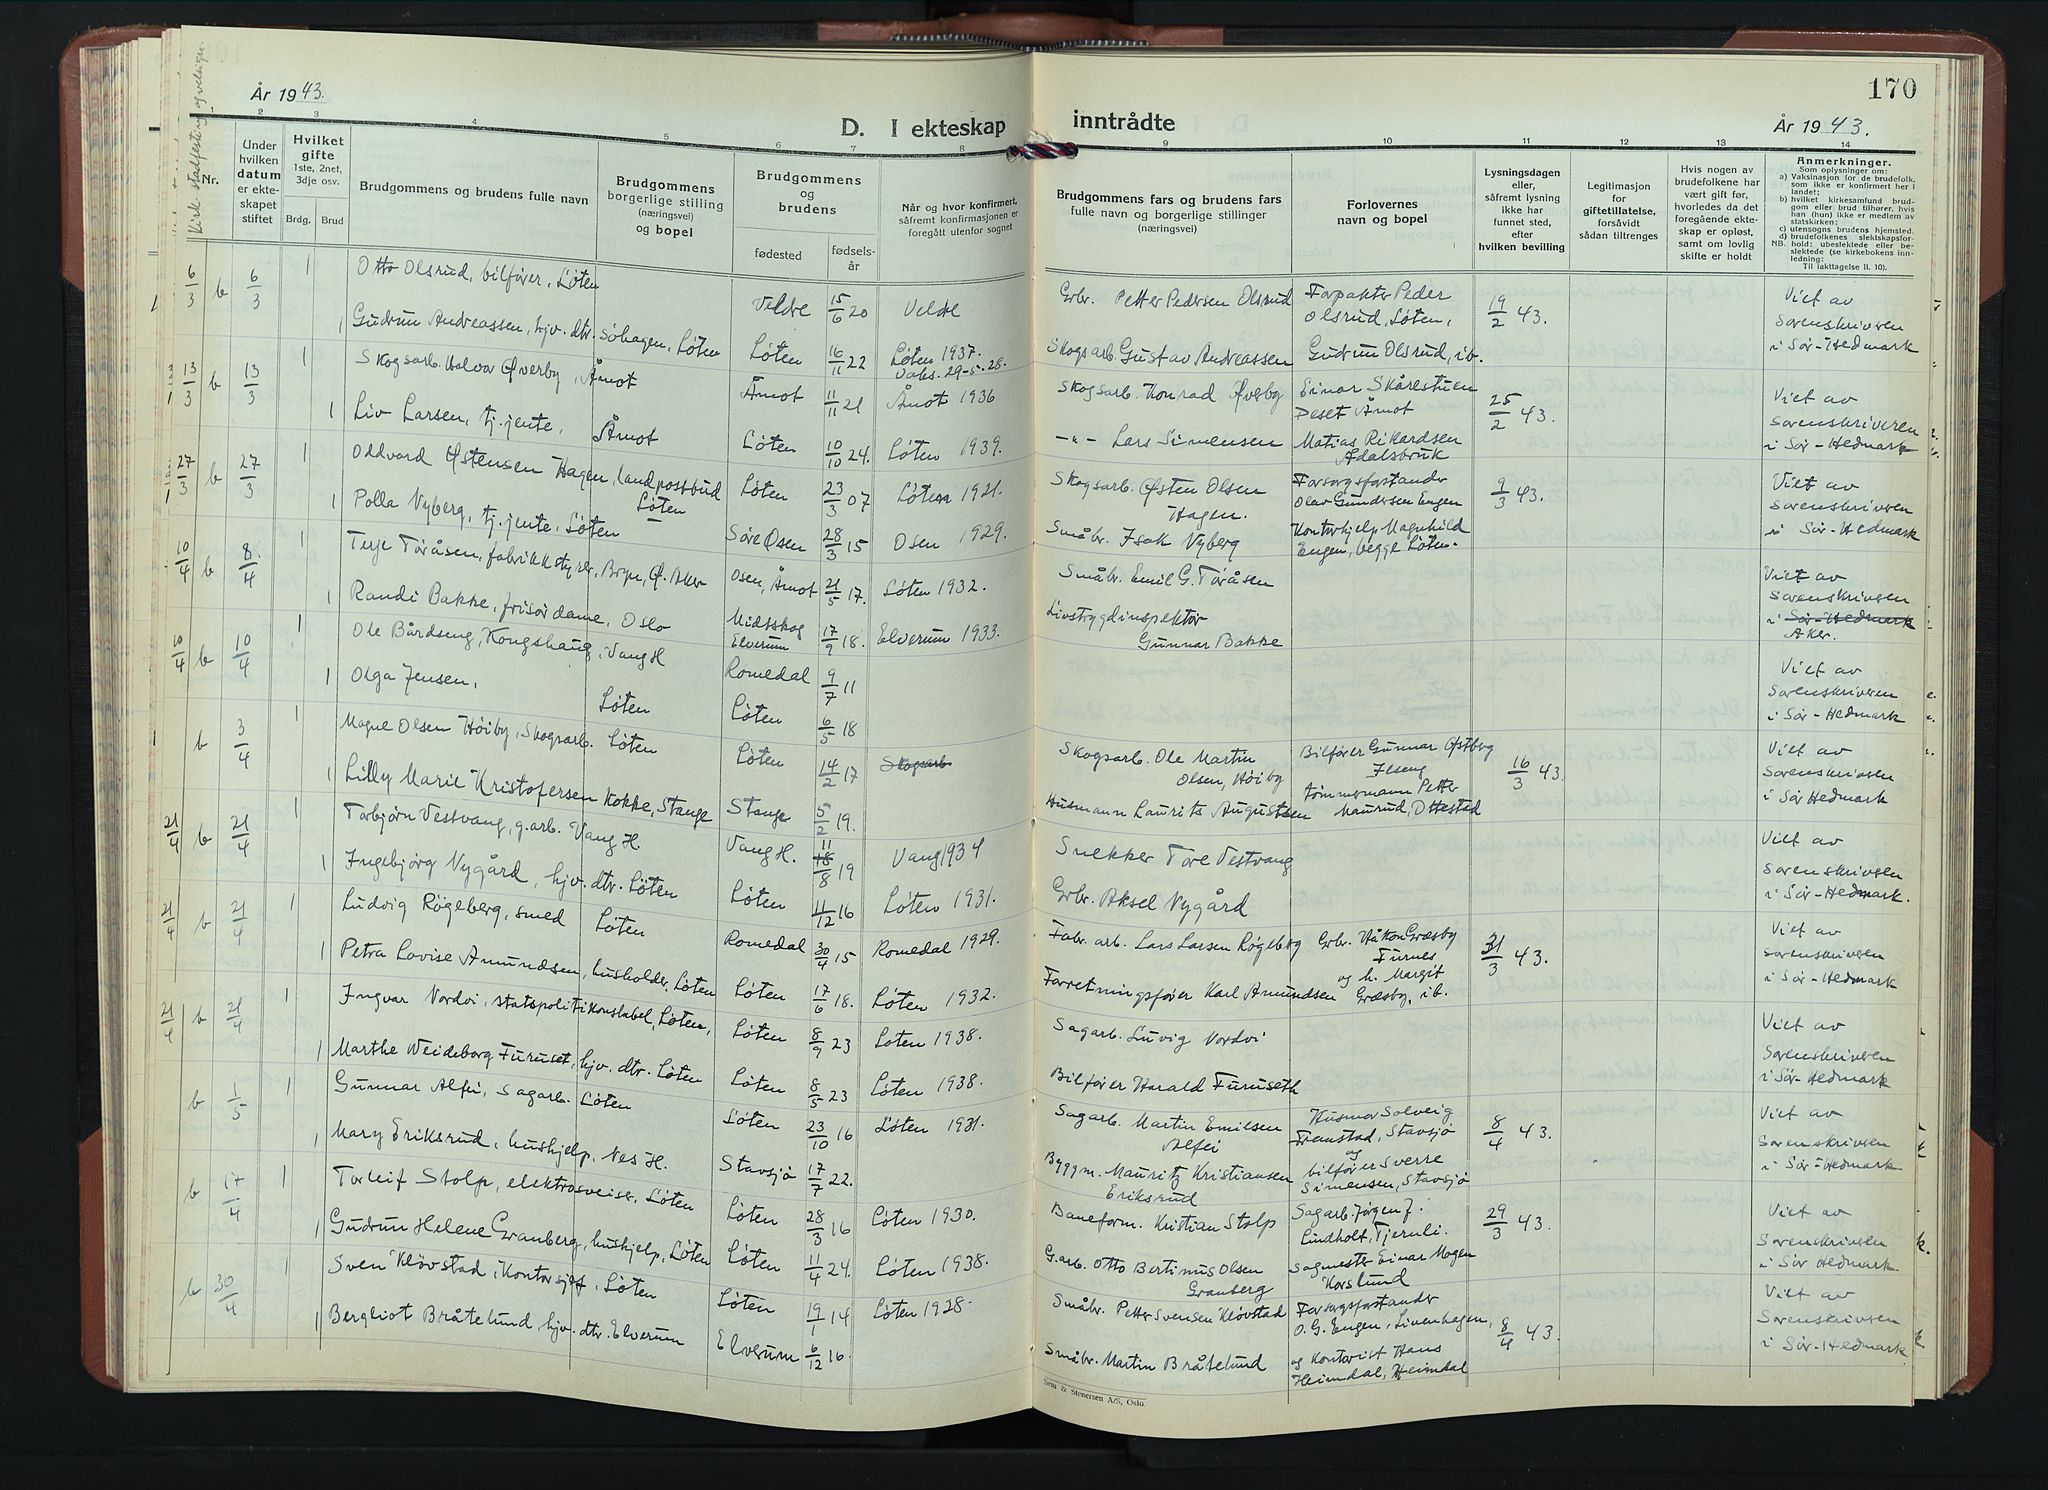 År 1943.
D. I ekteskap
inntrådte
År 1943.
170
Kirk. stadfesting og velsign.
1 2 3 4 5 6 7 8 9 10 11 12 13 14
Nr.
Under hvilken datum er ekteskapet stiftet
Hvilket gifte 1ste, 2net, 3dje osv.
Brdg. Brud
Brudgommens og brudens fulle navn
Brudgommens borgerlige stilling (næringsvei) og bopel
Brudgommens og brudens
fødested
fødselsår
Når og hvor konfirmert, såfremt konfirmasjonen er foregått utenfor sognet
Brudgommens fars og brudens fars fulle navn og borgerlige stillinger (næringsvei)
Forlovernes navn og bopel
Lysningsdagen eller, såfremt lysning ikke har funnet sted, efter hvilken bevilling
Legitimasjon for giftetillatelse, forsåvidt sådan tiltrenges
Hvis nogen av brudefolkene har vært gift før, hvorledes da det foregående ekteskap er opløst, samt om lovlig skifte er holdt
Anmerkninger.
Som oplysninger om:
a) Vaksinasjon for de brudefolk, som ikke er konfirmert her i landet;
b) hvilket kirkesamfund brudgom eller brud tilhører, hvis han (hun) ikke er medlem av statskirken;
c) utensogns brudens hjemsted.
d) brudefolkenes slektskapsforhold: ubeslektede eller beslektede (se kirkebokens innledning;
NB.
Til iakttagelse ll. 10).
6/3 b 6/3 1 Otto Olsrud, bilfører, Løten Veldre 15/6 20 Veldre Grbr. Petter Pedersen Olsrud Forpakter Peder Olsrud, Løten, 19/2 43. Viet av Sorenskriveren i Sør-Hedmark
1 Gudrun Andreassen, hjv. dtr. Søhagen, Løten Løten 16/11 22 Løten 1937. Vaks. 29-5-28. Skogsarb. Gustav Andreassen Gudrun Olsrud, ib.
13/3 b 13/3 1 Skogsarb. Halvor Øverby, Åmot Åmot 11/11 21 Åmot 1936 Skogsarb. Konrad Øverby Einar Skårestuen Deset Åmot 25/2 43. Viet av Sorenskriveren i Sør-Hedmark
1 Liv Larsen, tj.jente, Åmot Løten 10/10 24. Løten 1939. -"- Lars Simensen Matias Rikardsen Ådalsbruk
27/3 b 27/3 1 Oddvard Østensen Hagen, landpostbud Løten Løten 23/3 07 Løten 1921. Skogsarb. Østen Olsen Hagen. Forsorgsforstander Olav Gundersen Engen 9/3 43. Viet av Sorenskriveren i Sør-Hedmark
1 Polla Nyberg, tj.jente, Løten Søre Osen 28/3 15 Osen 1929. Småbr. Isak Nyberg Kontorhjelp Magnhild Engen, begge Løten.
10/4 b 8/4 1 Terje Toråsen, fabrikkstyrer, Bryn, Ø. Aker Osen, Åmot 21/5 17. Løten 1932. Småbr. Emil G. Toråsen Viet av Sorenskriveren i Sør-Hedmark Aker.
1 Randi Bakke, frisørdame, Oslo Midtskog Elverum 17/9 18. Elverum 1933. Livstrygdinspektør Gunnar Bakke
10/4 b 10/4 1 Ole Bårdseng, Kongshaug, Vang H Romedal 9/7 11 Viet av Sorenskriveren i Sør-Hedmark
1 Olga Jensen, Løten Løten 6/5 18
b 3/4 1 Magne Olsen Høiby, Skogsarb. Løten Løten 14/2 17 Skogsarb Skogsarb. Ole Martin Olsen, Høiby Bilfører Gunnar Østberg Ilseng 16/3 43. Viet av Sorenskriveren i Sør Hedmark
1 Lilly Marie Kristofersen Kokke, Stange Stange 5/2 19. Husmann Laurits Augustsen tømmermann Petter Maurud, Ottestad
21/4 b 21/4 1 Torbjørn Vestvang, g.arb. Vang H. Vang H. 11 18/8 19 Vang 1934 Snekker Tore Vestvang Viet av Sorenskriveren i Sør-Hedmark.
1 Ingebjørg Nygård, hjv. dtr. Løten Løten 11/12 16 Løten 1931. Grbr. Aksel Nygård
21/4 b 21/4 1 Ludvig Røgeberg, smed Løten Romedal 30/4 15 Romedal 1929. Fabr. arb. Lars Larsen Røgeberg Grbr. Håkon Græsby Furnes 31/3 43. Viet av Sorenskriveren i Sør-Hedmark
1 Petra Lovise Amundsen, husholder, Løten Løten 17/6 18. Løten 1932. Forretningsfører Karl Amundsen og h. Margit Græsby, ib.
21/4 b 21/4 1 Ingvar Nordvi, statspolitikonstabel, Løten, Løten 8/9 23 Løten 1938. Sagarb. Luvig Nordvi Viet av Sorenskriveren i Sør-Hedmark
1 Marthe Weideborg Furuset, hjv. dtr. Løten Løten 8/5 23 Løten 1938. Bilfører Harald Furuseth
b 1/5 1 Gunnar Alfei, Sagarb. Løten Løten 23/10 16 Løten 1931. Sagarb. Martin Emilsen Alfei Husmor Solveig Fremstad, Stavsjø 8/4 43. Viet av Sorenskriveren i Sør-Hedmark
1 Mary Eriksrud, hushjelp, Nes H. Stavsjø 17/7 22. Byggm. Mauritz Kristiansen Eriksrud og bilfører Sverre Simensen, Stavsjø
b 17/4 1 Torleif Stolp, elektrosveiser, Løten Løten 28/3 16 Løten 1930. Baneform. Kristian Stolp Sagarb. Jørgen J. Lindholt, Tjernli. 29/3 43. Viet av Sorenskriveren i Sør Hedmark
1 Gudrun Helene Granberg, hushjelp, Løten Løten 11/4 24. Løten 1938. G.arb. Otto Bertinus Olsen Granberg Sagmester Einar Mogen Korslund
b 30/4 1 Sven Kløvstad, Kontorsjef, Løten Løten 19/1 14 Løten 1928. Småbr. Petter Svensen Kløvstad Forsorgsforstander O. G. Engen, Livenhagen, 8/4 43. Viet av Sorenskriveren i Sør-Hedmark
1 Bergliot Bråtelund, hjv. dtr. Elverum Elverum 6/12 16. Småbr. Martin Bråtelund og Kontorist Hans Heimdal, Heimdal
Sem & Stenersen A/S, Oslo.